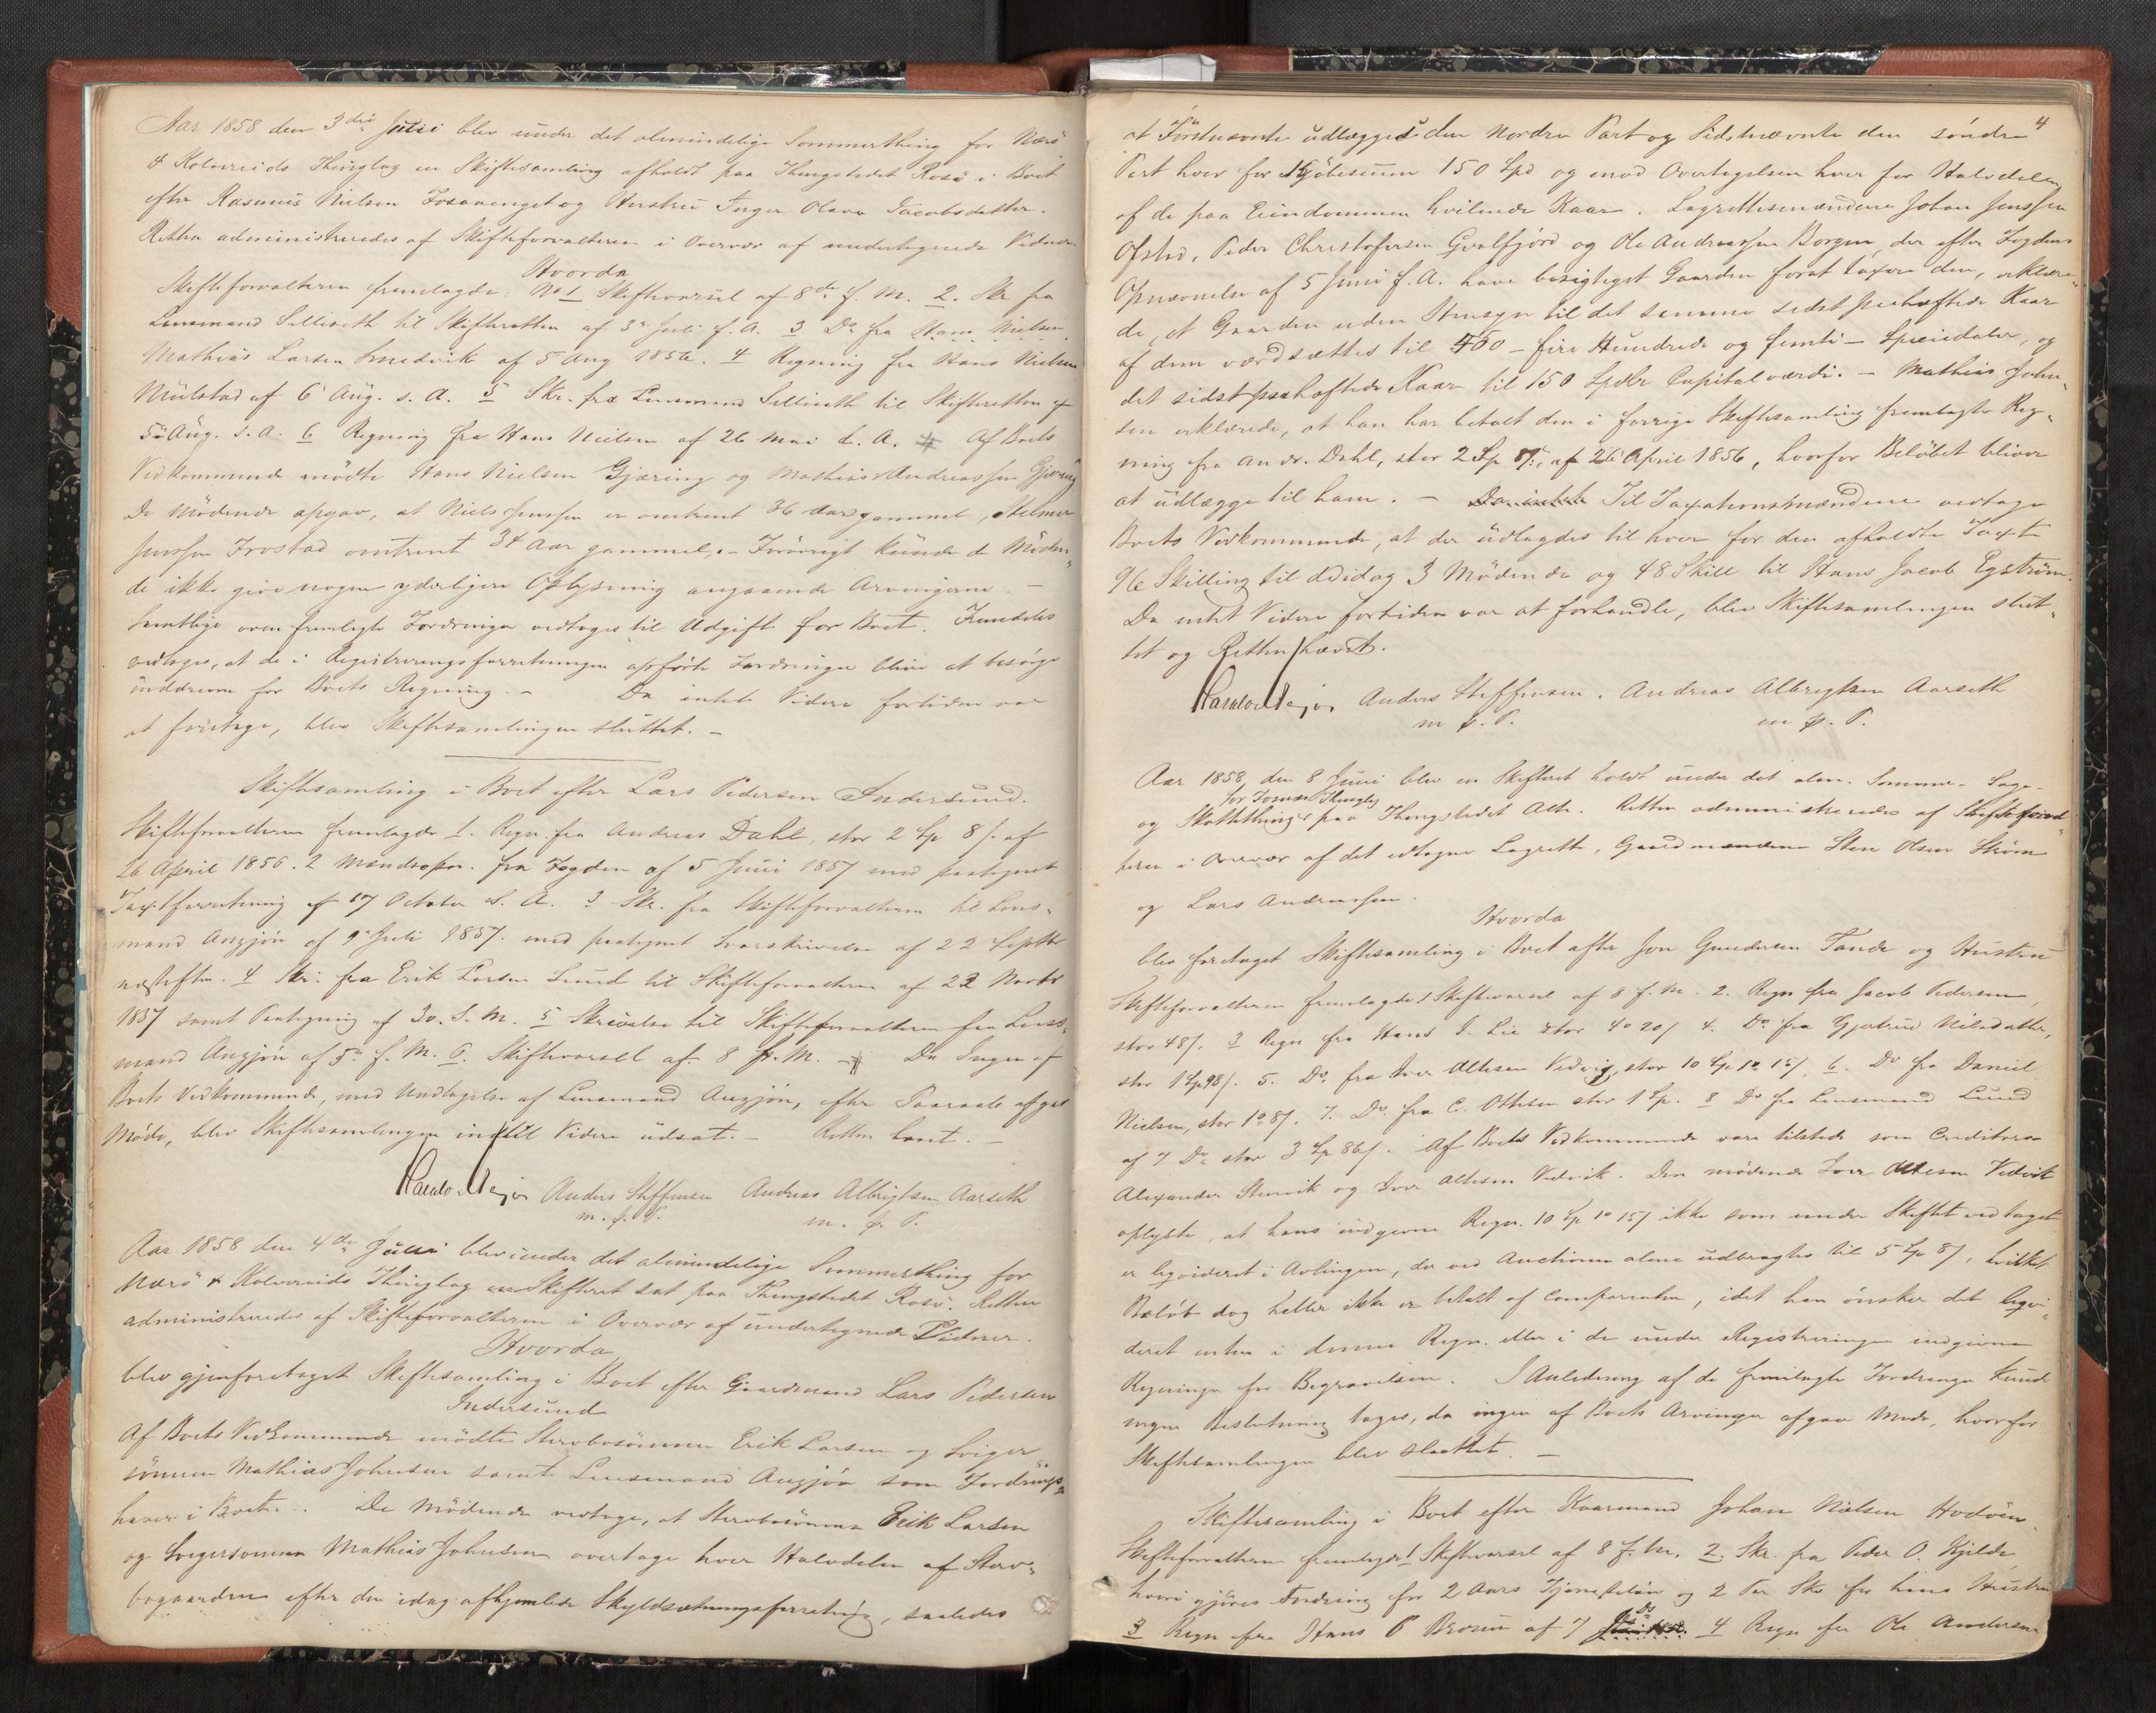 Aar 1858 den 3die Juli blev under det almindelige Sommerthing for Nærö
& Kolvereids Thinglag en Skiftesamling afholdt paa Thingstedet Rosö i Boet
efter Rasmus Nielsen Fosaavenget og Hustru Inger Olava Jacobsdatter.
Retten administreredes af Skifteforvalteren i Overvær af undertegnede Vidner.
Hvorda
Skifteforvalteren fremlagde: No 1 Skiftevarsel af 8de f. M. 2. Skr. fra
Lensmand Sellisth til Skifteretten af 3die Juli f. A. 3 Do fra Hans Nielsen
Mathias Larsen Smedvik af 5 Aug 1856. 4 Regning fra Hans Nielsen
Mulstad af 6 Aug. s. A. 5 Skr. fra Lensmand Sellisth til Skifteretten af
5te Aug. s. A. 6 Regning fra Hans Nielsen af 26 Mai d. A. # Af Boets
Vedkommende mödte Hans Nielsen Gjæring og Mathias Andreassen Gjæring
De Mödende opgav, at Niels Jenssen er omtrent 36 Aar gammel,
Jenssen Frostad omtrent 34 Aar gammel. - Forövrigt kunde de Möden-
de ikke give nogen yderligere Oplysning angaaende Arvingerne. -
Samtlige ovenfremlagte Fordringer vedtoges til Udgift for Boet. Fremdeles
vedtoges, at de i Registreringsforretningen opförte Fordringer bliver at besörge
inddrevne for Boets Regning. - Da intet Videre fortiden var
at foretage, blev Skiftesamlingen sluttet. -
Skiftesamling i Boet efter Lars Pedersen Indersund.
Skifteforvalteren fremlagde 1. Regn. fra Andreas Dahl, stor 2 Sp 8 s. af
26 April 1856. 2 Mandsopn. fra Fogden af 5 Juni 1857 med paategnet
Taxtforretning af 17 October s. A. 3 Skr. fra Skifteforvalteren til Lens-
mand Angjön af 9de Juli 1857. med paategnet Svarskrivelse af 22 Septbr
næstefter. 4 Skr. fra Erik Larsen Lund til Skifteforvalteren af 22 Novbr
1857 samt Paategning af 30. S. M. 5 Skrivelse til Skifteforvalteren fra Lens-
mand Angjön af 5te f. M. 6. Skiftevarsel af 8 f. M. - # Da Ingen af
Boets Vedkommende, med Undtagelse af Lensmand Angjön, efter Paaraab afgav
Möde, blev Skiftesamlingen indtil Videre udsat. - Retten hævet. -
Anders Steffensen Andreas Albrigtsen Aarseth
m. p. P. m. p. P.
Aar 1858 den 4de Juli blev under det almindelige Sommerthing for
Nærö & Kolvereids Thinglag en Skifteret sat paa Thingstedet Rosö. Retten
administreredes af Skifteforvalteren i Overvær af undertegnede Vidner.
Hvorda
blev gjenforetaget Skiftesamling i Boet efter Gaardmand Lars Pedersen
Indersund
Af Boets Vedkommende mödte Stervbosönnen Erik Larsen og Sviger-
sönnen Mathias Johnsen samt Lensmand Angjön som Fordrings-
haver i Boet. - De Mödende vedtoge, at Stervbosönnen Erik Larsen
og Svigersönnen Mathias Johnsen overtage hver Halvdelen af Sterv-
bogaarden efter den idag afhjemlede Skyldsætningsforretning, saaledes
4
at Förstnævnte udlægges den nordre Part og Sidstnævnte den söndre
Part hver for Kjöbesum 150 Spd og mod Overtagelsen hver for Halvdelen
af de paa Eiendommen hvilende Kaar. Lagrettesmændene Johan Jenssen
Ofstad, Peder Christofersen Gvalfjörd og Ole Andreassen Borgen, der efter Fogdens
Opnævnelse af 5 Juni f. A. have besigtiget Gaarden forat taxere den, erklære-
de, at Gaarden uden Hensyn til det samme sidst paahæftede Kaar
af dem værdsættes til 450 - fire Hundrede og femti - Speciedaler, og
det sidst paahæftede Kaar til 150 Spdlr Capitalværdi. - Mathias John-
sen erklærede, at han har betalt den i forrige Skiftesamling fremlagte Reg-
ning fra Andr. Dahl, stor 2 Sp 8 s. af 26 April 1856, hvorfor Belöbet bliver
at udlægge til ham. - Da intet Til Taxationsmændene vedtoge
Boets Vedkommende, at der udlagdes til hver for den afholdte Taxt
96 Skilling til de idag 3 Mödende og 48 Skill til Hans Jacob Egström.
Da intet Videre fortiden var at forhandle, blev Skiftesamlingen slut-
tet og Retten hævet.
Anders Steffensen. Andreas Albrigtsen Aarseth
m. p. P. m. p. P.
Aar 1858 den 8 Juni blev en Skifteret holdt under det alm. Sommer- Sage-
for Fosnæs Thinglag
og Skattething paa Thingstedet Alte. Retten administreredes af Skifteforval-
teren i Overvær af det edtagne Lagrette, Gaardmændene Sten Olsen Ström
og Lars Andreassen.
Hvorda
blev foretaget Skiftesamling i Boet efter Jon Gundersen Tande og Hustru
Skifteforvalteren fremlagde 1 Skiftevarsel af 8 f. M. 2. Regn fra Jacob Pedersen,
stor 48 s. 3 Regn fra Hans J. Lie stor 4o 20 s 4. Do fra Gjertrud Nilsdatter,
stor 1 Sp 98 s. 5. Do. fra Iver Altesen Vedvig, stor 10 Sp 1o 15 s. 6. Do fra Daniel
Nielsen, stor 1o 8 s. 7. Do. fra C. Ottesen stor 1 Sp. 8 Do fra Lensmand Lund
af 7 Do stor 3 Sp 86 s. Af Boets Vedkommende vare tilstede som Creditorer
Alexander Stenvik og Iver Altesen Vedvik. Den mödende Iver Altesen Vedvik
oplyste, at hans indgivne Regn. 10 Sp 1o 15 s ikke som under Skiftet vedtaget
er liqvideret i Avlingen, der ved Auctionen alene udbragtes til 5 Sp 8 s, hvilket
Belöb dog heller ikke er betalt af Comparenten, idet han önsker det liqvi-
deret enten i denne Regn. eller i de under Registreringen indgivne
Regninger for Begravelsen. I Anledning af de fremlagte Fordringer kunde
ingen Beslutning tages, da ingen af Boets Arvinger afgav Möde, hvorfor
Skiftesamlingen blev sluttet. -
Skiftesamling i Boet efter Kaarmand Johan Nielsen Hodöen.
Skifteforvalteren fremlagde 1 Skiftevarsel af 8 f. M. 2. Skr. fra Peder O. Kjelde
hvori gjöres Fordring for 2 Aars Tjenestelön og 2 Par Sko for hans Hustru
3 Regn fra Hans P Brosun af 7 Ds. 4 Regn fra Ole Andersen